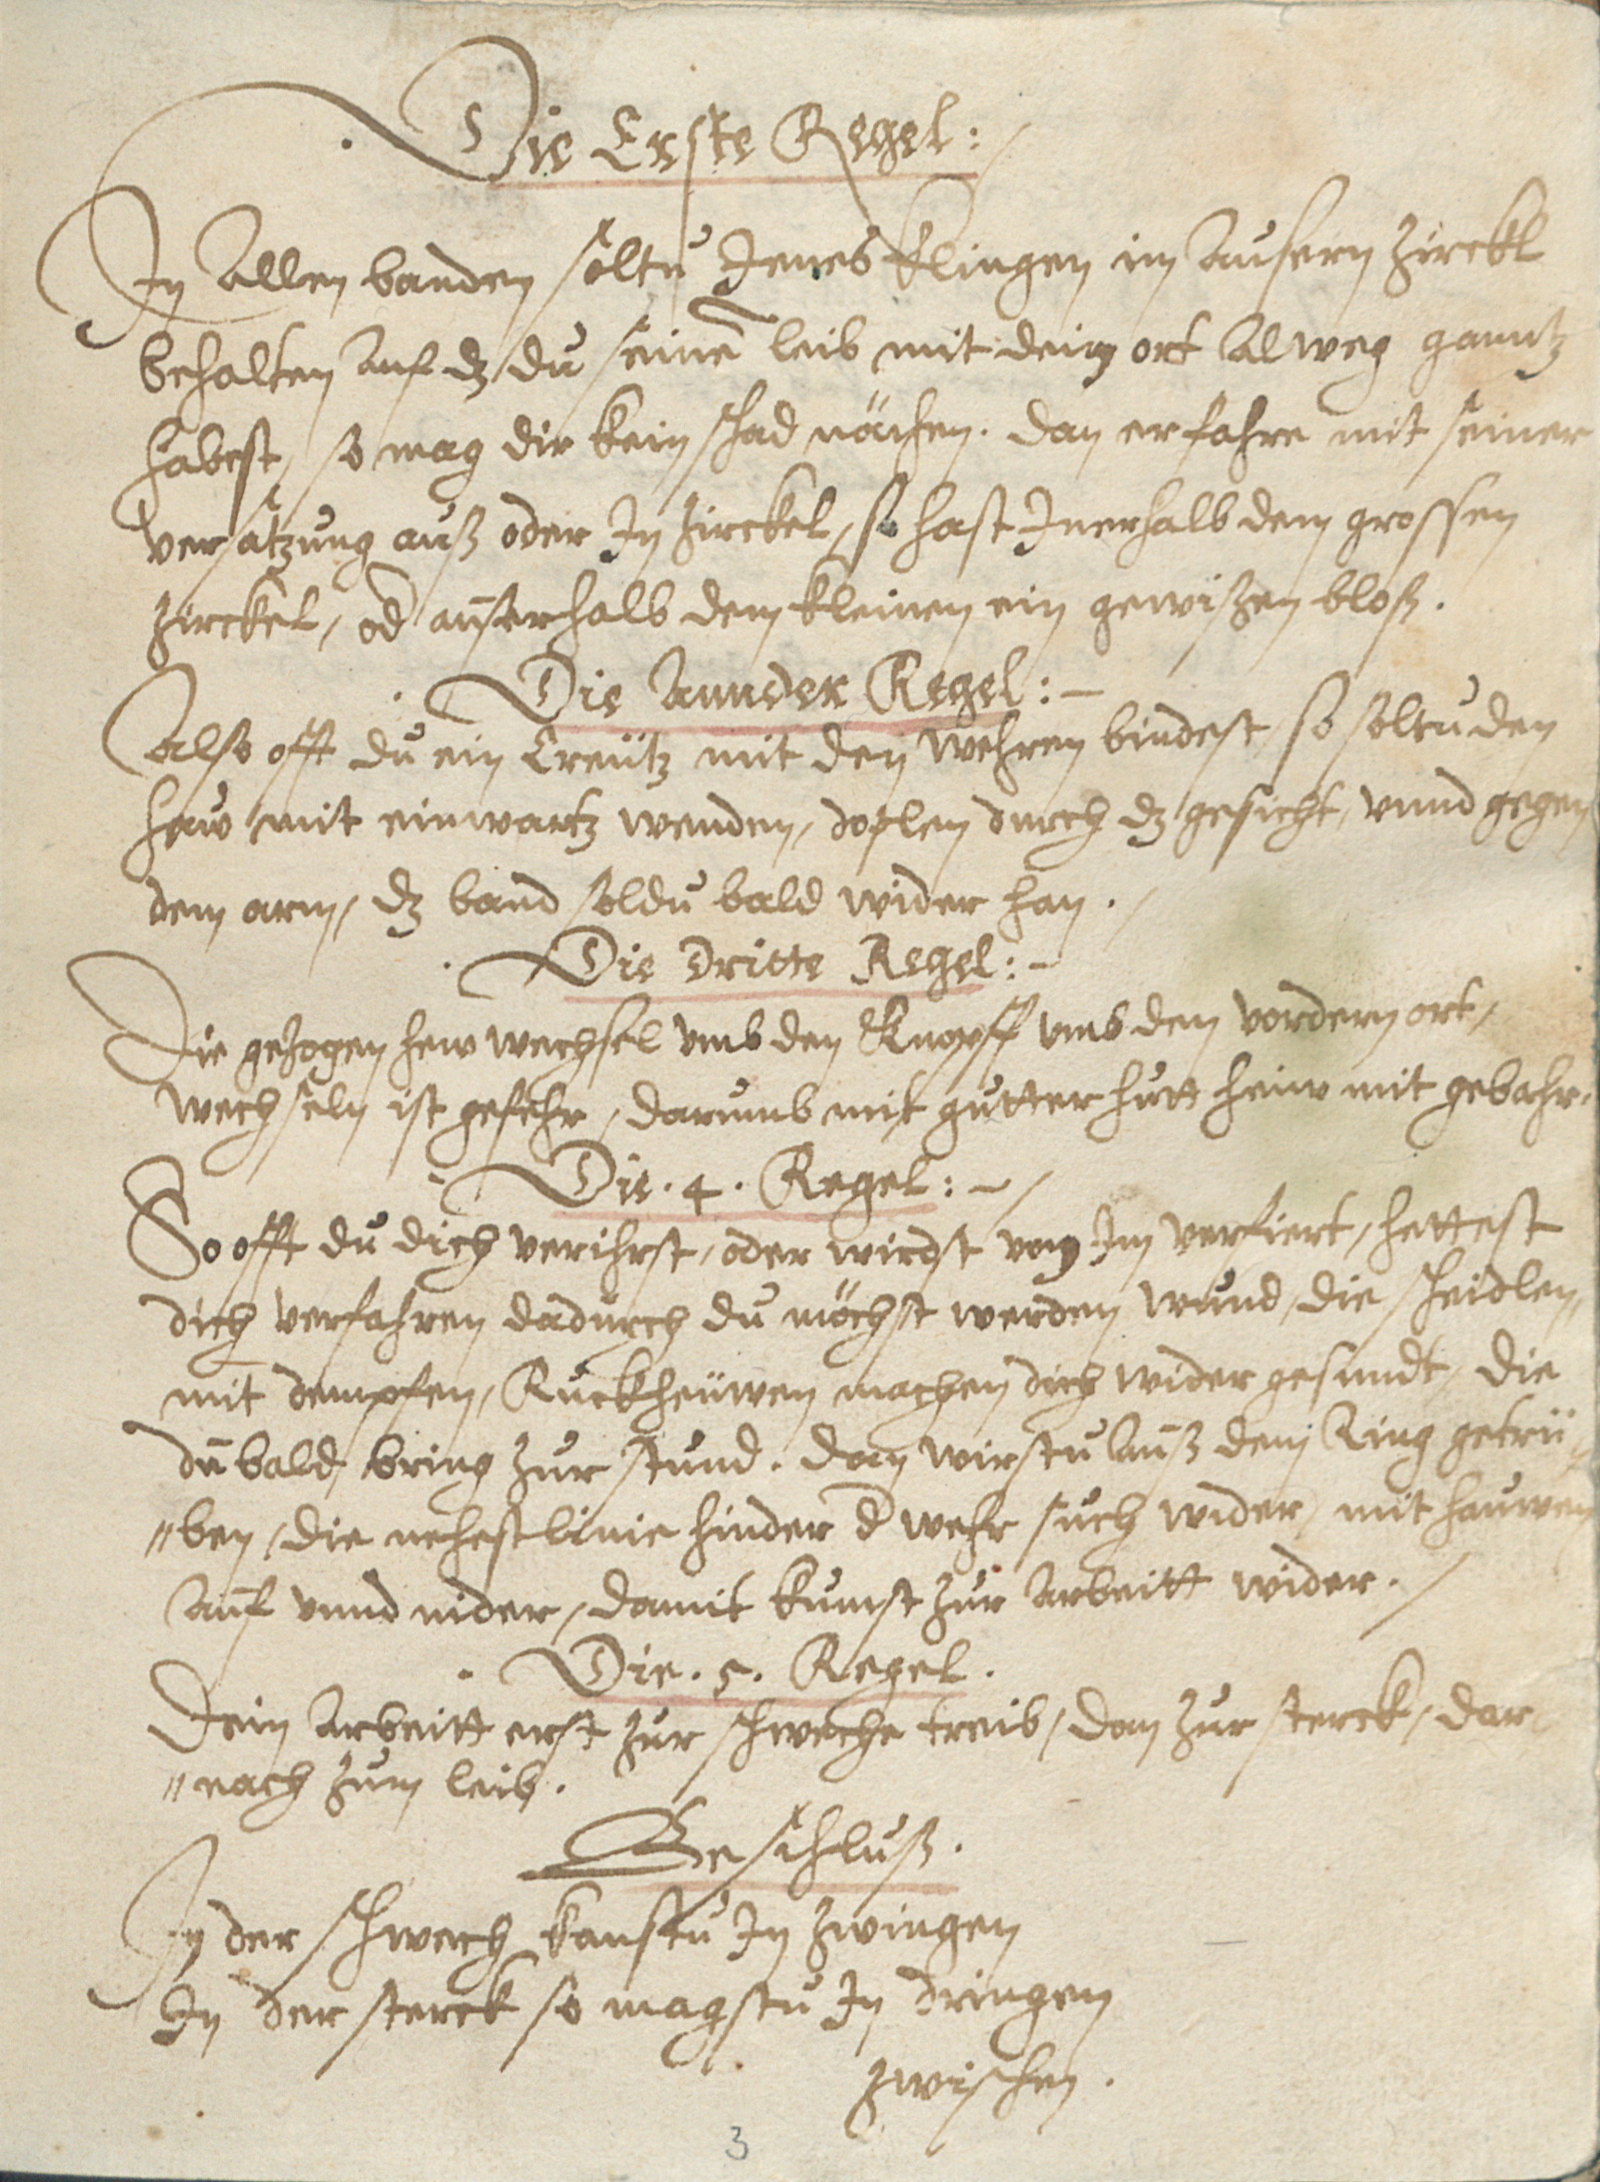 Die Erste Regel:
In Allen banden soltu Jenes klingen im Ausern zirckl
behalten Auf dz du seinē leib mit deim ort Alweg gantz
habest, so mag dir kein schad nächen. dan er fahre mit seiner
versatzung auß oder In zirckel, so hast Inerhalb dem grossen
zirckel, od ausserhalb dem kleinen ein gewißen bloß.
Die Annder Regel:
Also offt du ein Creütz mit den wehren bindest so soltu den
haw mit einwartz wenden, doplen durch dz gesicht, vnnd gegen
dem arm, dz band soldu bald wider han.
Die dritte Regel:
Die gezogen hew wechsel vmb den Knopff vmb den vordern ort,
wechseln ist gefehr, darumb mit gutter hutt heiw mit gebahr.
Die .4. Regel:
So offt du dich verihrst, oder wirdst von Im verfiert, hettest
dich verfahren dadurch du möchst werden wund, die scheidlen,
mit dempfen, Ruckheüwen machen dich wider gesundt, die
du bald bring zur stund. dan wirstu auß dem Ring getrü
"ben, die nehest linie hinder d wehr such wider, mit hauwen
auf vnnd nider, damit kumst zur Arbeitt wider.
Die .5. Regel.
Dein Arbeitt erst zur schweche treib, dan zur sterck, dar
"nach zum leib.
Beschluß.
In der schwech kanstu In zwingen
In der sterck so magstu In dringen
zwischen.
3